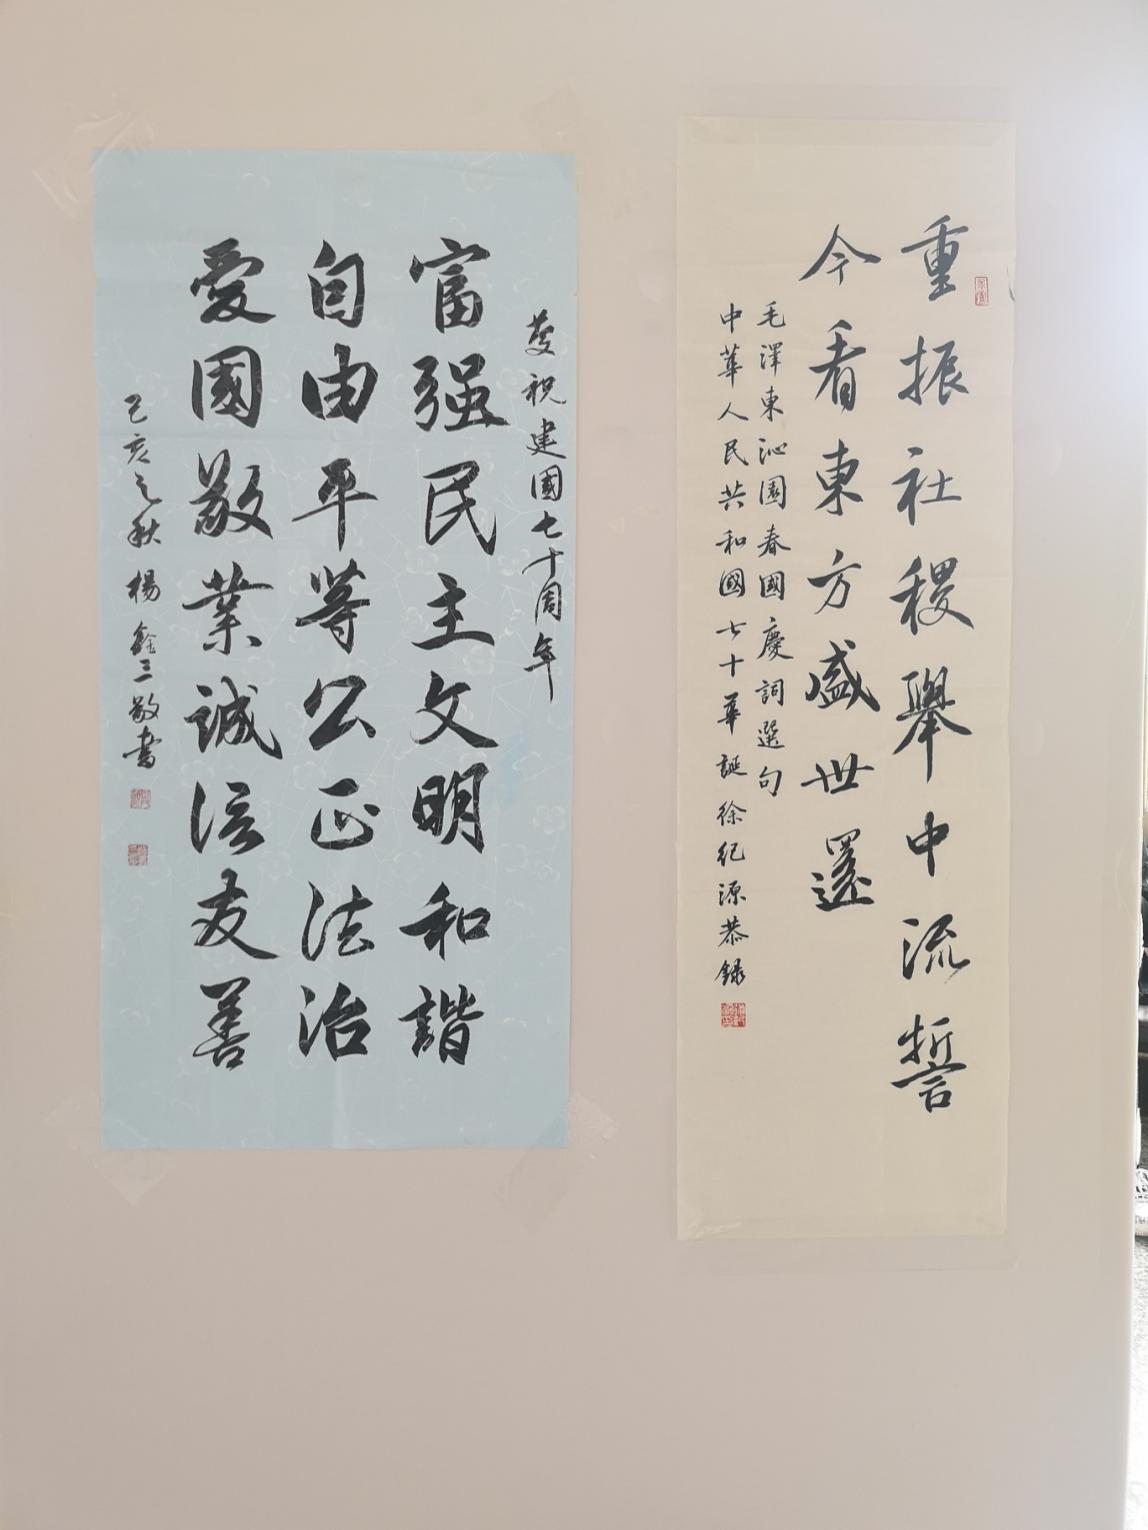 重振社稷舉中流誓
今看東方盛世還
毛澤東沁園春國慶詞選句
中華人民共和國七十華誕 徐紀源恭録
慶祝建國七十周年
富强民主文明和諧
自由平等公正法治
愛國敬業誠信友善
己亥之秋 楊鑫三敬書